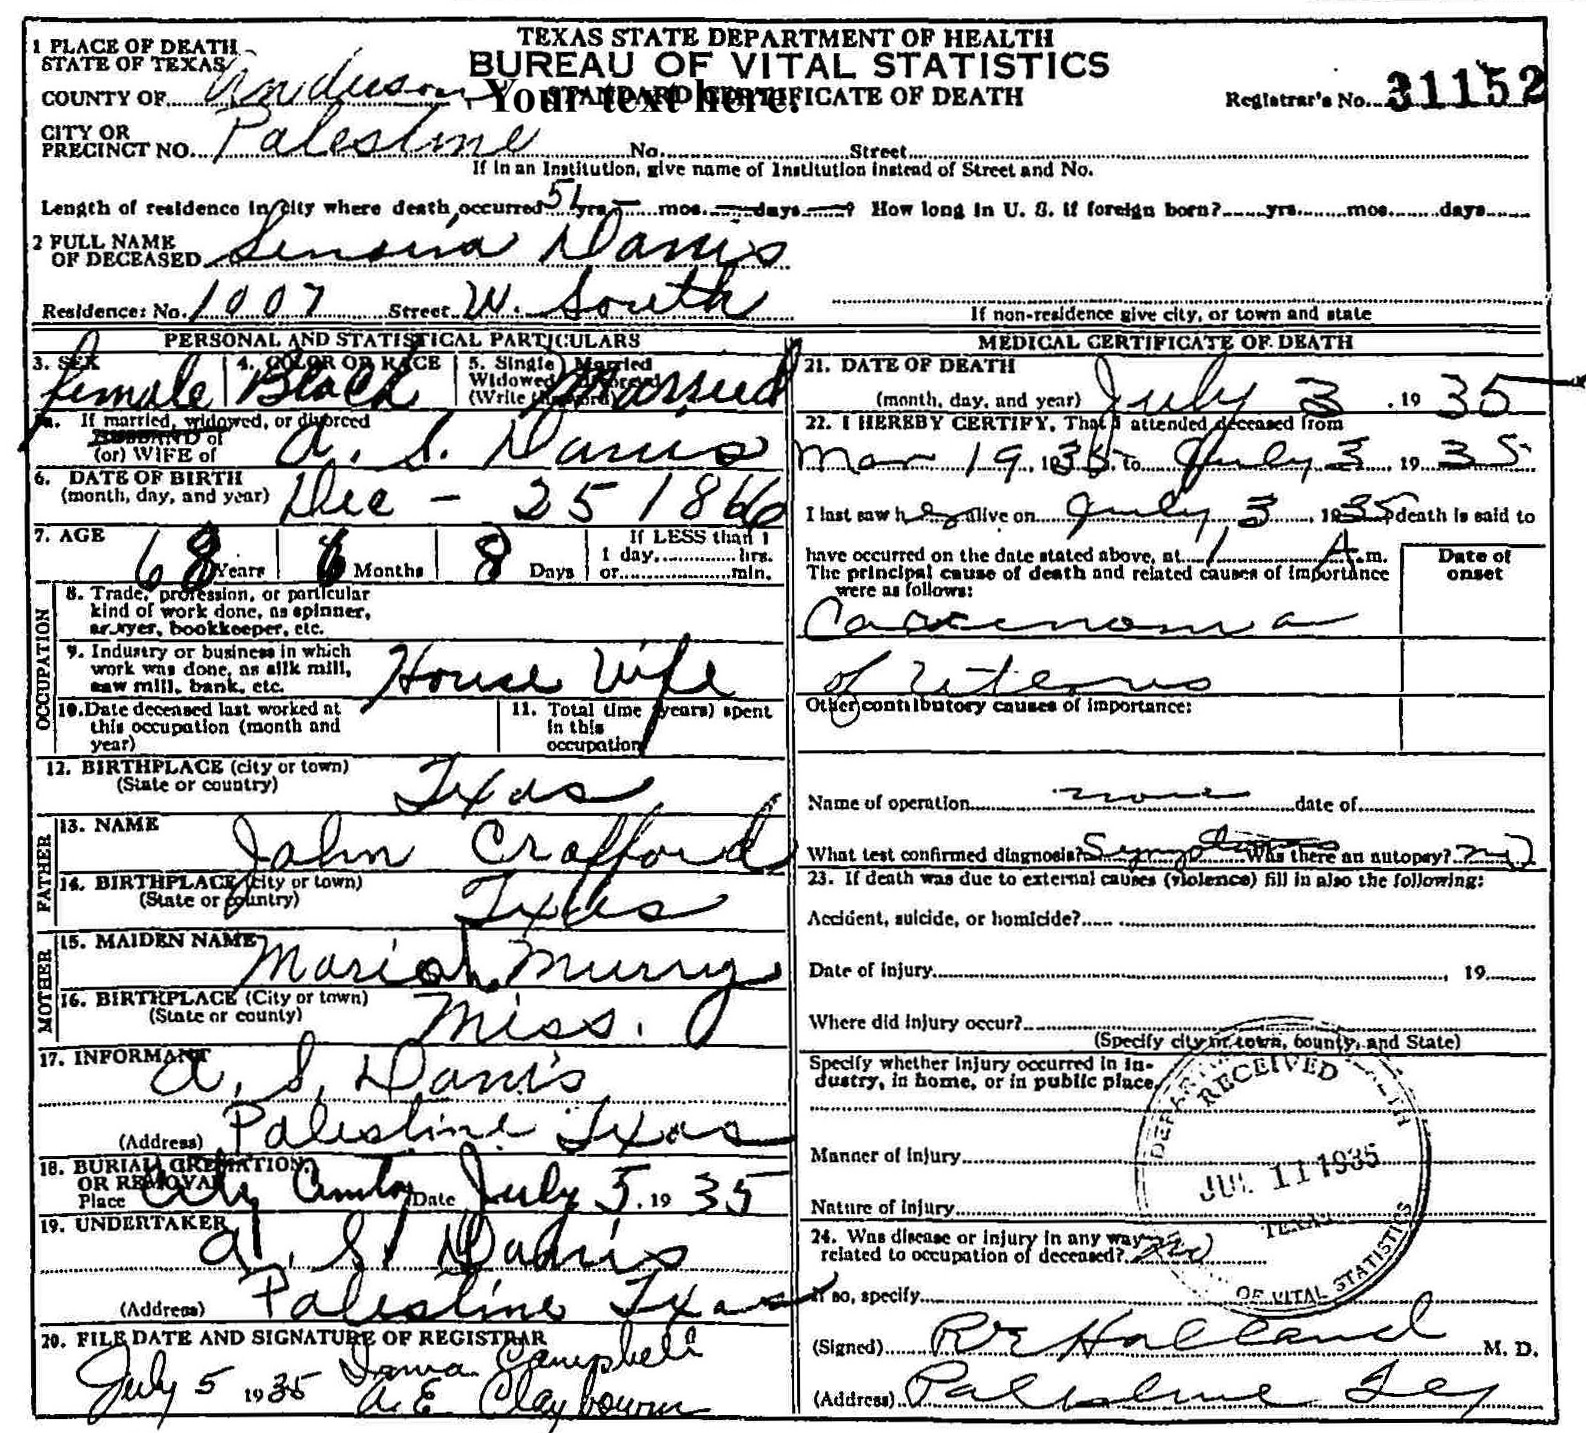 TEXAS STATE DEPARTMENT OF HEALTH
BUREAU OF VITAL STATISTICS
STANDARD CERTIFICATE OF DEATH
Your text here.
1 PLACE OF DEATH
STATE OF TEXAS
COUNTY OF Anderson
Registrar's No. 31152
CITY OR
PRECINCT NO. Palestine No. Street
If in an Institution, give name of Institution instead of Street and No.
Length of residence in city where death occurred 51 yrs. — mos. — days — ? How long in U. S. if foreign born? yrs. mos. days
2 FULL NAME
OF DECEASED Senora Davis
Residence: No. 1007 Street W. South
If non-residence give city, or town and state
PERSONAL AND STATISTICAL PARTICULARS
3. SEX female
4. COLOR OR RACE Black
5. Single Married
Widowed Divorced
(Write the word) Married
5a. If married, widowed, or divorced
HUSBAND of
(or) WIFE of A. S. Davis
6. DATE OF BIRTH
(month, day, and year) Dec - 25 1866
7. AGE 68 Years 6 Months 8 Days
If LESS than 1
1 day hrs.
or min.
OCCUPATION
8. Trade, profession, or particular
kind of work done, as spinner,
sawyer, bookkeeper, etc.
9. Industry or business in which
work was done, as silk mill,
saw mill, bank, etc. House Wife
10. Date deceased last worked at
this occupation (month and
year)
11. Total time (years) spent
in this
occupation
12. BIRTHPLACE (city or town)
(State or country) Texas
FATHER
13. NAME John Crafford
14. BIRTHPLACE (city or town)
(State or country) Texas
MOTHER
15. MAIDEN NAME Mariah Murry
16. BIRTHPLACE (City or town)
(State or county) Miss.
17. INFORMANT A. S. Davis
(Address) Palestine Texas
18. BURIAL, CREMATION,
OR REMOVAL
Place City Date July 5, 1935
19. UNDERTAKER A. S. Davis
(Address) Palestine Texas
20. FILE DATE AND SIGNATURE OF REGISTRAR
July 5 1935 Irma Campbell
A. E. Claybourn
MEDICAL CERTIFICATE OF DEATH
21. DATE OF DEATH
(month, day, and year) July 3, 1935
22. I HEREBY CERTIFY, That I attended deceased from
Mar 19, 1935, to July 3, 1935
I last saw her alive on July 3, 1935 death is said to
have occurred on the date stated above, at 1 A. m.
The principal cause of death and related causes of importance
were as follows:
Date of
onset
Carcinoma
of Uterus
Other contributory causes of importance:
Name of operation none date of
What test confirmed diagnosis? Symptoms Was there an autopsy? no
23. If death was due to external causes (violence) fill in also the following:
Accident, suicide, or homicide?
Date of injury, 19
Where did injury occur?
(Specify city or town, county, and State)
Specify whether injury occurred in in-
dustry, in home, or in public place.
Manner of injury
Nature of injury
24. Was disease or injury in any way
related to occupation of deceased? no
If so, specify
(Signed) R E Holland M. D.
(Address) Palestine Tex
RECEIVED
JUL 11 1935
TEXAS
OF VITAL STATISTICS